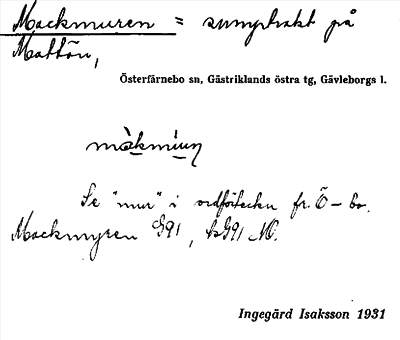 Mackmuren = sumptrakt på
Mattön,
Österfärnebo sn, Gästriklands östra tg, Gävleborgs l.
màkmùuṇ
Se "mur" i ordförteckn fr. Ö-bo.
Mackmyren G91, bG91 NO.
Ingegärd Isaksson 1931